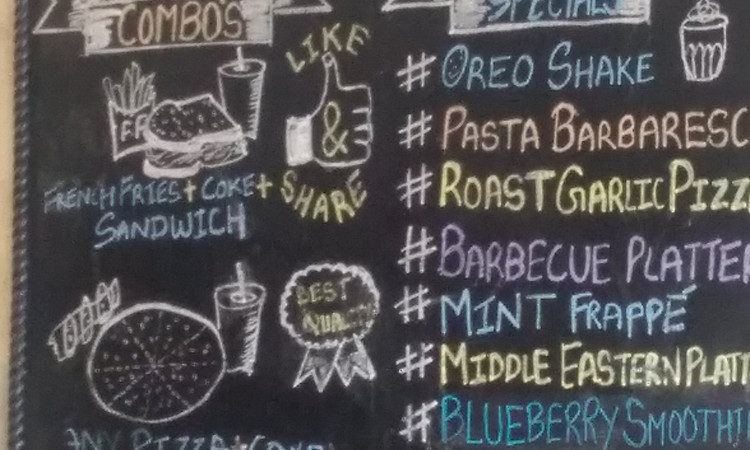 COMBO'S
FF
LIKE
&
SHARE
FRENCH FRIES + COKE +
SANDWICH
BEST
QUALITY
ANY PIZZA + COKE
SPECIALS
# OREO SHAKE
# PASTA BARBARESC
# ROAST GARLIC PIZZ
# BARBECUE PLATTE
# MINT FRAPPÉ
# MIDDLE EASTERN PLATT
# BLUEBERRY SMOOTHI